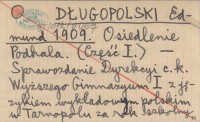 DŁUGOPOLSKI Ed-
mund 1909. Osiedlenie
Podhala. (Część I.) —
Sprawozdanie Dyrekcyi c. k.
Wyższego Gimnazyum I z ję-
zykiem wykładowym polskim
w Tarnopolu za rok szkolny